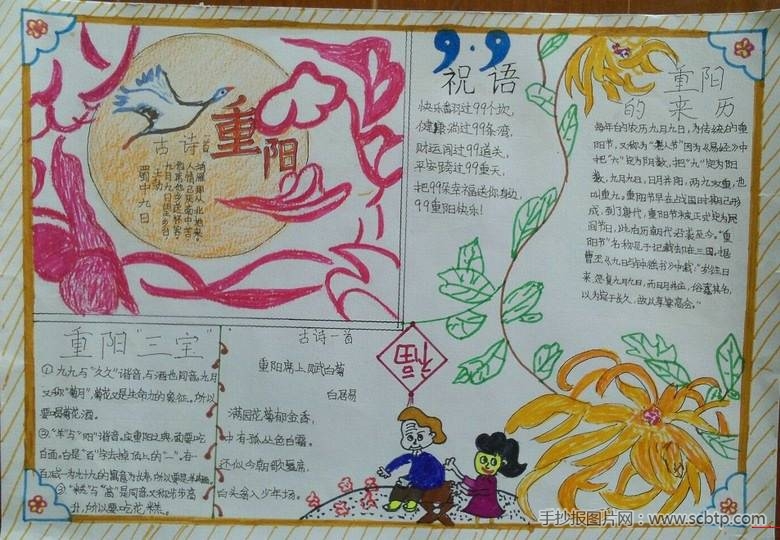 古诗
重阳
蜀中九日
王勃
九月九日望乡台，
他席他乡送客杯。
人情已厌南中苦，
鸿雁那从北地来。
9.9
祝语
快乐翻过99个坎，
健康淌过99条湾，
财运闯过99道关，
平安跨过99重天，
把99朵幸福送你身边，
99重阳快乐！
重阳
的来历
每年的农历九月九日，为传统的重
阳节，又称为"老人节"因为《易经》中
把"六"定为阴数，把"九"定为阳
数，九月九日，日月并阳，两九双重，也
叫重九。重阳节早在战国时期已形
成，到了唐代，重阳节被正式定为民
间节日，此后历朝代沿袭至今。"重
阳节"名称见于记载却在三国，据
曹丕《九日与钟繇书》中载："岁往月
来，忽复九月九日，而日月并应，俗嘉其名，
以为宜于长久，故以享宴高会。"
重阳"三宝"
①九九与"久久"谐音，与酒也同音。九月
又称"菊月"，菊花又是生命力的象征。所以
要喝菊花酒。
②"羊"与"阳"谐音。应重阳之典，面要吃
白面，白是"百"字去掉顶上的"一"，有一
百减一为九十九的寓意为长寿，所以要吃羊肉面。
③"糕"与"高"是同音又称步步高
升，所以要吃花糕。
古诗一首
重阳席上赋白菊
白居易
满园花菊郁金香，
中有孤丛色白霜。
还似今朝歌舞席，
白头翁入少年场。
福
手抄报图片网：www.scbtp.com